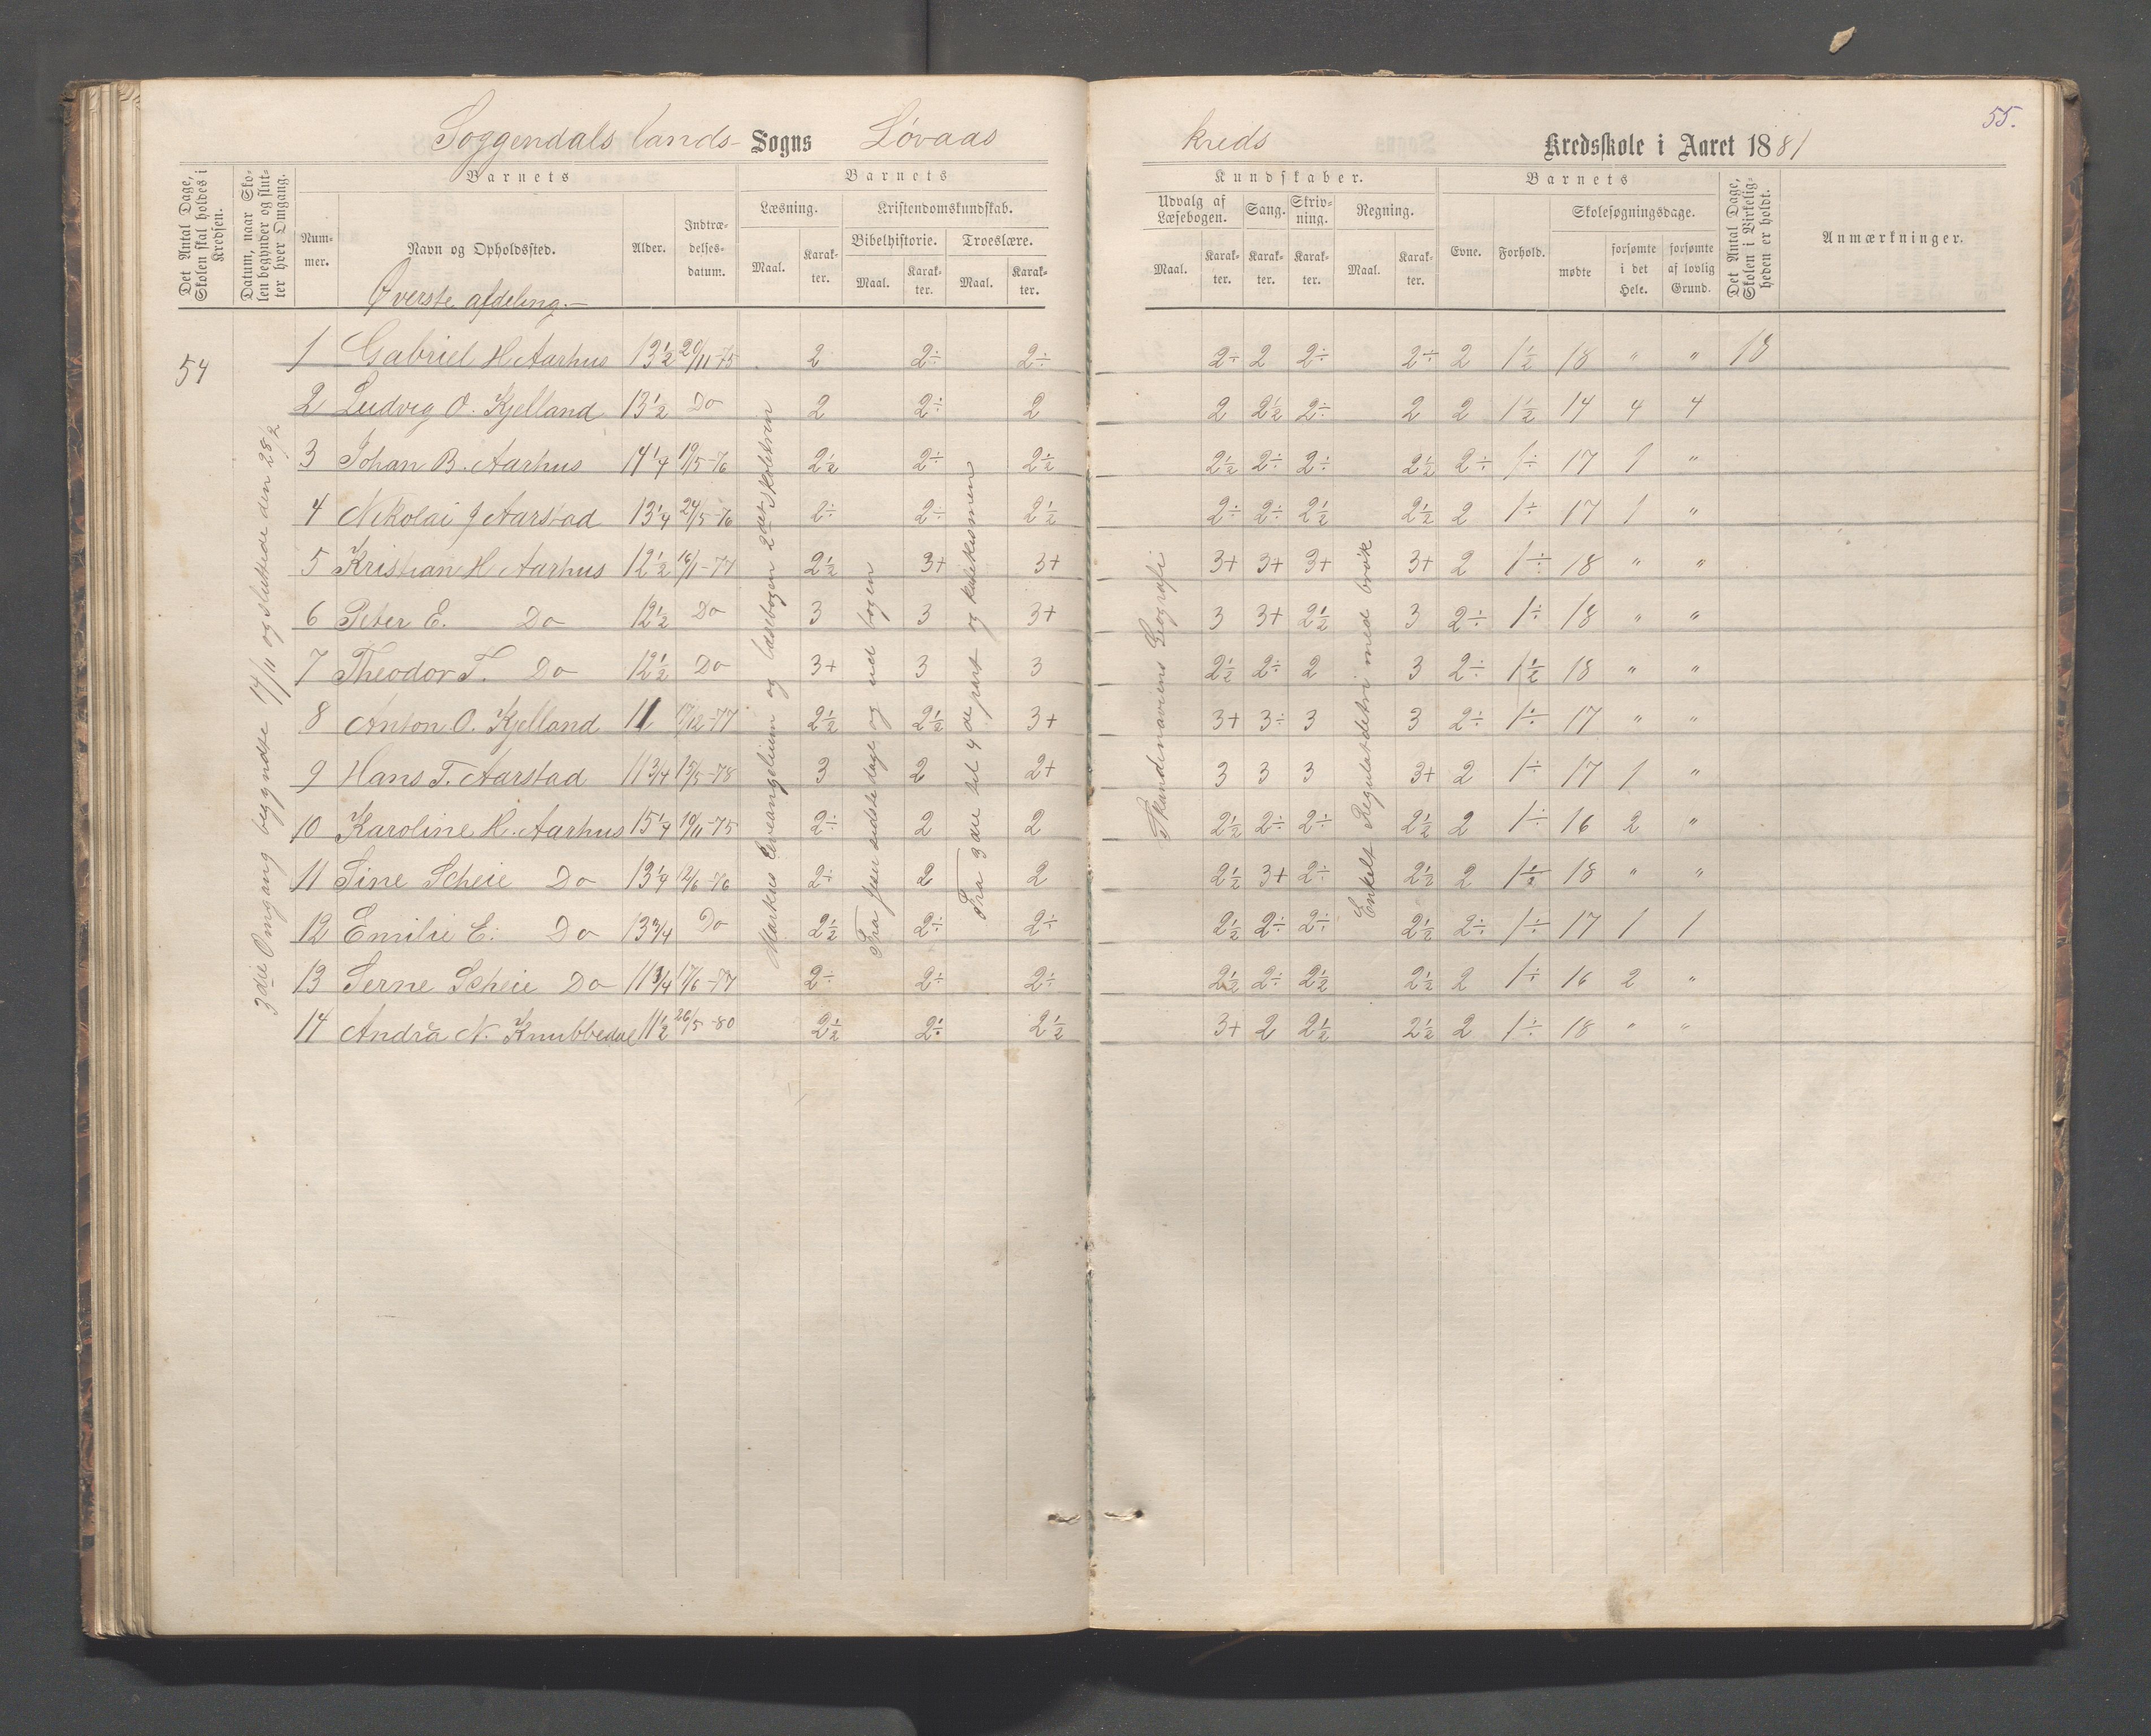 55.
Soggendals lands- Sogns Løvaas kreds Kredsskole i Aaret 1881
Det Antal Dage, Skolen skal holdes i Kredsen.
Datum, naar Skolen begynder og slutter hver Omgang.
Barnets
Nummer.
Navn og Opholdssted.
Alder.
Indtrædelsesdatum.
Barnets
Læsning.
Maal.
Karakter.
Kristendomskundskab.
Bibelhistorie.
Maal.
Karakter.
Troeslære.
Maal.
Karakter.
Kundskaber.
Udvalg af Læsebogen.
Maal.
Karakter.
Sang.
Karakter.
Skrivning.
Karakter.
Regning.
Maal.
Karakter.
Barnets
Evne.
Forhold.
Skolesøgningsdage.
mødte
forsømte i det Hele.
forsømte af lovlig Grund.
Det Antal Dage, Skolen i Virkeligheden er holdt.
Anmærkninger.
Øverste afdeling.-
54
3die Omgang begyndte 14/11 og sluttede den 28/2
Markus Evangelium og læsebogen 2det skoletrin
Fra Jesu sidste dage og ud bogen
Fra 3die til 4de part og katekismen
Skandinaviens Geografi
Enkelt Regulatdetri med brøk
1 Gabriel H Aarhus 13½ 20/11-75 2 2÷ 2÷ 2÷ 2 2÷ 2÷ 2 1½ 18 " " 18
2 Ludvig O. Kjelland 13½ Do 2 2÷ 2 2 2½ 2÷ 2 2 1½ 14 4 4
3 Johan B. Aarhus 14¼ 19/5-76 2½ 2÷ 2½ 2½ 2÷ 2÷ 2½ 2÷ 1÷ 17 1 "
4 Nikolai J Aarstad 13¼ 24/5-76 2÷ 2÷ 2½ 2÷ 2÷ 2½ 2½ 2 1÷ 17 1 "
5 Kristian H Aarhus 12½ 16/1-77 2½ 3+ 3+ 3+ 3+ 3+ 3+ 2 1÷ 18 " "
6 Peter E. Do 12½ Do 3 3 3+ 3 3+ 2½ 3 2÷ 1÷ 18 " "
7 Theodor T. Do 12½ Do 3+ 3 3 2½ 2÷ 2 3 2÷ 1½ 18 " "
8 Anton O. Kjelland 11 17/12-77 2½ 2½ 3+ 3+ 3÷ 3 3 2÷ 1÷ 17 " "
9 Hans T. Aarstad 11¾ 15/5-78 3 2 2+ 3 3 3 3+ 2 1÷ 17 1 "
10 Karoline H. Aarhus 15¼ 19/11-75 2÷ 2 2 2½ 2÷ 2÷ 2½ 2 1÷ 16 2 "
11 Sine Scheie Do 13¼ 12/6-76 2÷ 2 2 2½ 3+ 2÷ 2½ 2 1½ 18 " "
12 Emilie E. Do 13¾ Do 2½ 2÷ 2÷ 2½ 2÷ 2÷ 2½ 2÷ 1÷ 17 1 1
13 Serne Scheie Do 11¾ 17/6-77 2÷ 2÷ 2÷ 2½ 2÷ 2½ 2½ 2 1÷ 16 2 "
14 Andrea N. Knubbedal 11½ 26/5-80 2½ 2÷ 2½ 3+ 2 2½ 2½ 2 1÷ 18 " "